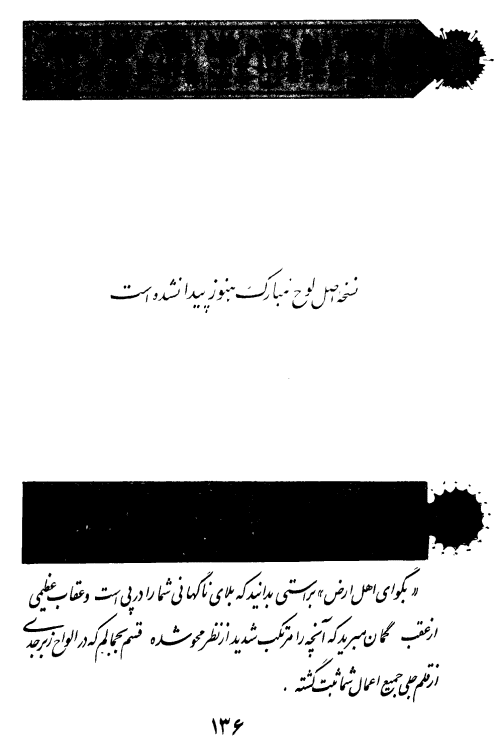 نسخهٔ اصل لوح مبارک هنوز پیدا نشده است
« بگو ای اهل ارض » براستی بدانید که بلای ناگهانی شما را در پی است و عقاب عظیمی
از عقب گمان مبرید که آنچه را مرتکب شدید از نظر محو شده قسم بجمالم که در الواح زبرجدی
از قلم جلی جمیع اعمال شما ثبت گشته .
۱۳۶